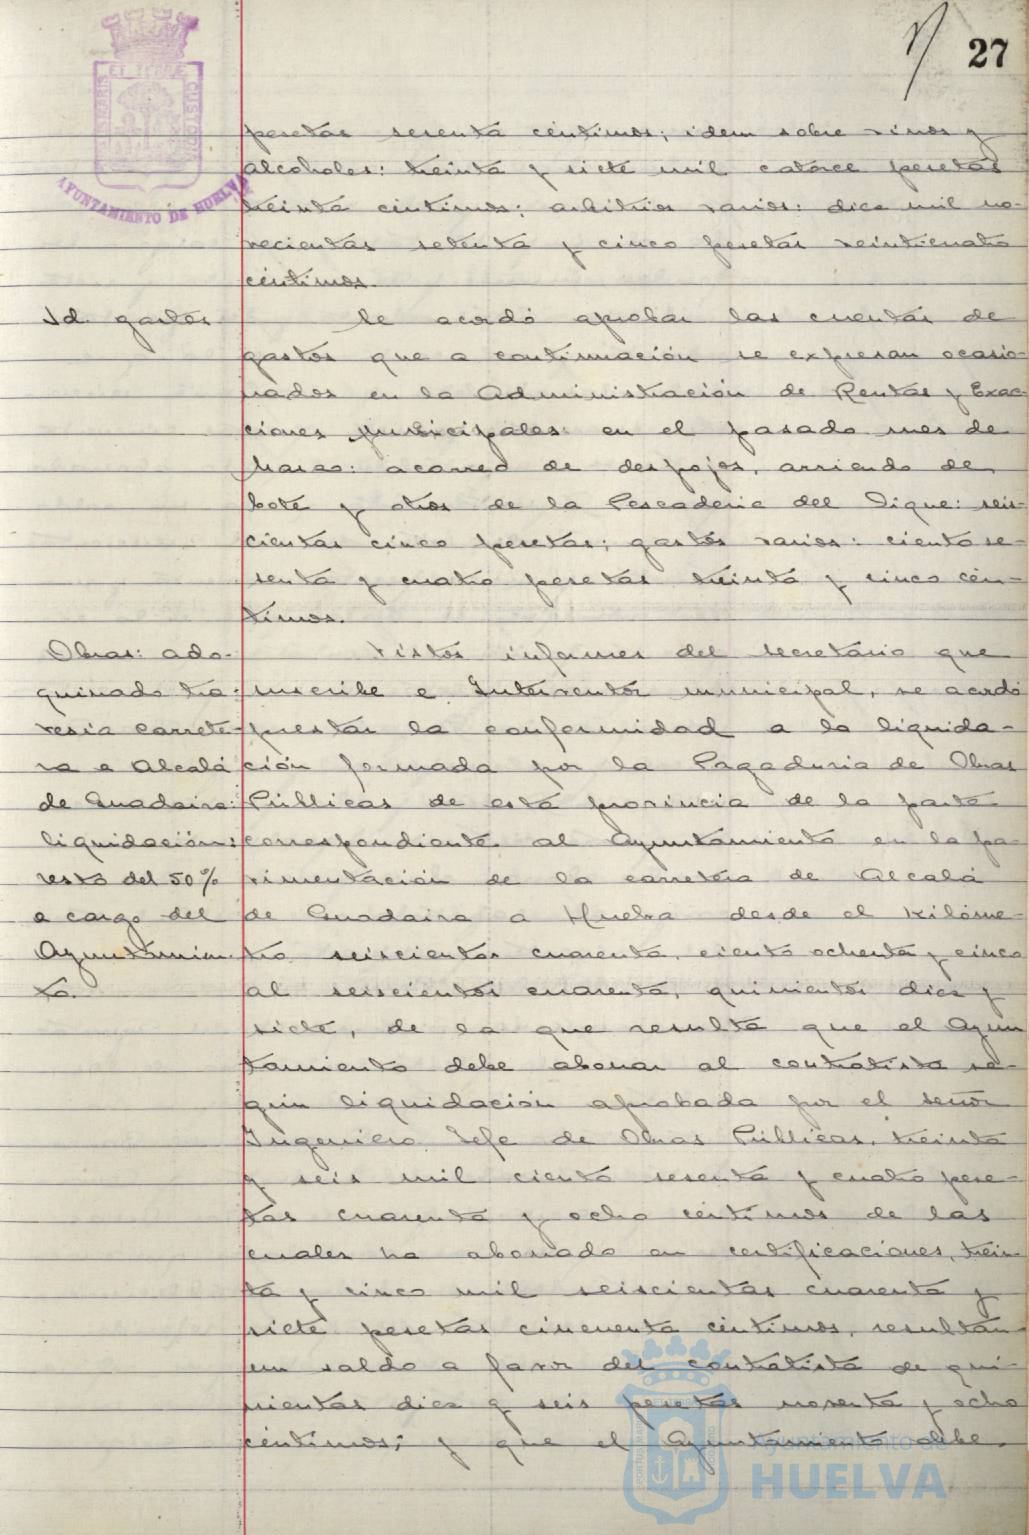 27
AYUNTAMIENTO DE HUELVA
pesetas sesenta céntimos; idem sobre vinos y
alcoholes: treinta y siete mil catorce pesetas
treinta céntimos; arbitrios varios: diez mil no-
vecientas setenta y cinco pesetas veinticuatro
céntimos.
Id. gastos
Se acordó aprobar las cuentas de
gastos que a continuación se expresan ocasio-
nados en la Administración de Rentas y Exac-
ciones municipales en el pasado mes de
Marzo: acarreo de despojos, arriendo de
bote y otros de la Pescadería del Dique: seis-
cientas cinco pesetas; gastos varios: ciento se-
senta y cuatro pesetas treinta y cinco cén-
timos.
Obras: ado-
quinado tra-
vesía carrete-
ra a Alcalá
de Guadaira:
liquidación:
resto del 50%
a cargo del
Ayuntamien-
to.
Vistos informes del Secretario que
suscribe e Interventor municipal, se acordó
prestar la conformidad a la liquida-
ción formada por la Pagaduría de Obras
Públicas de esta provincia de la parte
correspondiente al Ayuntamiento en la pa-
vimentación de la carretera de Alcalá
de Guadaira a Huelva desde el kilóme-
tro seiscientos cuarenta, ciento ochenta y cinco
al seiscientos cuarenta, quinientos diez y
siete, de la que resulta que el Ayun
tamiento debe abonar al contratista se-
gún liquidación aprobada por el señor
Ingeniero Jefe de Obras Públicas, treinta
y seis mil ciento sesenta y cuatro pese-
tas cuarenta y ocho céntimos de las
cuales ha abonado en certificaciones, trein-
ta y cinco mil seiscientas cuarenta y
siete pesetas cincuenta céntimos, resultan
un saldo a favor del contratista de qui-
nientas diez y seis pesetas noventa y ocho
céntimos; y que el Ayuntamiento debe
Ayuntamiento de
HUELVA